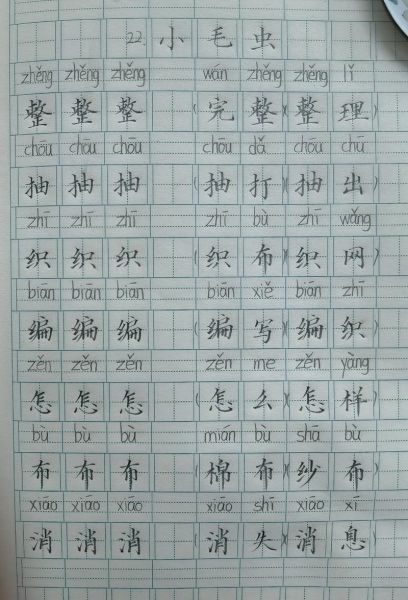 22. 小毛虫
zhěng zhěng zhěng wán zhěng zhěng lǐ
整 整 整 (完整)(整理)
chōu chōu chōu chōu dǎ chōu chū
抽 抽 抽 (抽打)(抽出)
zhī zhī zhī zhī bù zhī wǎng
织 织 织 (织布)(织网)
biān biān biān biān xiě biān zhī
编 编 编 (编写)(编织)
zěn zěn zěn zěn me zěn yàng
怎 怎 怎 (怎么)(怎样)
bù bù bù mián bù shā bù
布 布 布 (棉布)(纱布)
xiāo xiāo xiāo xiāo shī xiāo xī
消 消 消 (消失)(消息)